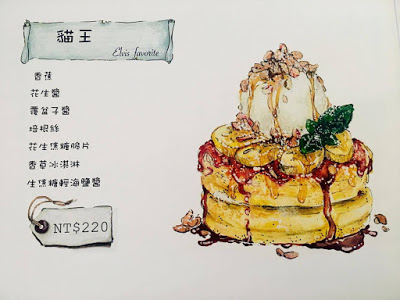 貓王
Elvis favorite
香蕉
花生醬
覆盆子醬
培根絲
花生焦糖脆片
香草冰淇淋
生焦糖輕海鹽醬
NT$220